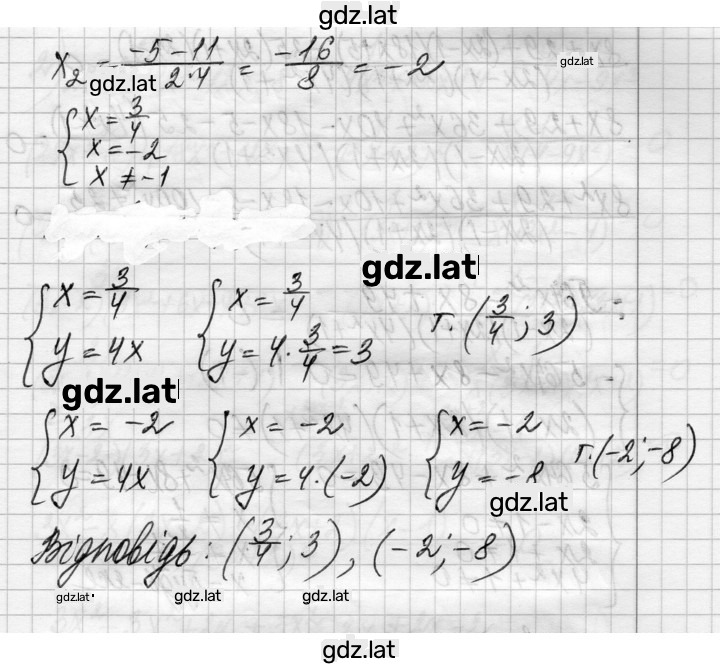 gdz.lat
x₂ = (-5-11)/(2·4) = -16/8 = -2
gdz.lat gdz.lat
{ x = 3/4
x = -2
x ≠ -1
gdz.lat
{ x = 3/4 { x = 3/4 т. (3/4; 3)
y = 4x y = 4·3/4 = 3
gdz.lat
{ x = -2 { x = -2 { x = -2 т. (-2; -8)
y = 4x y = 4·(-2) y = -8
gdz.lat
Відповідь: (3/4; 3), (-2; -8)
gdz.lat gdz.lat gdz.lat
gdz.lat